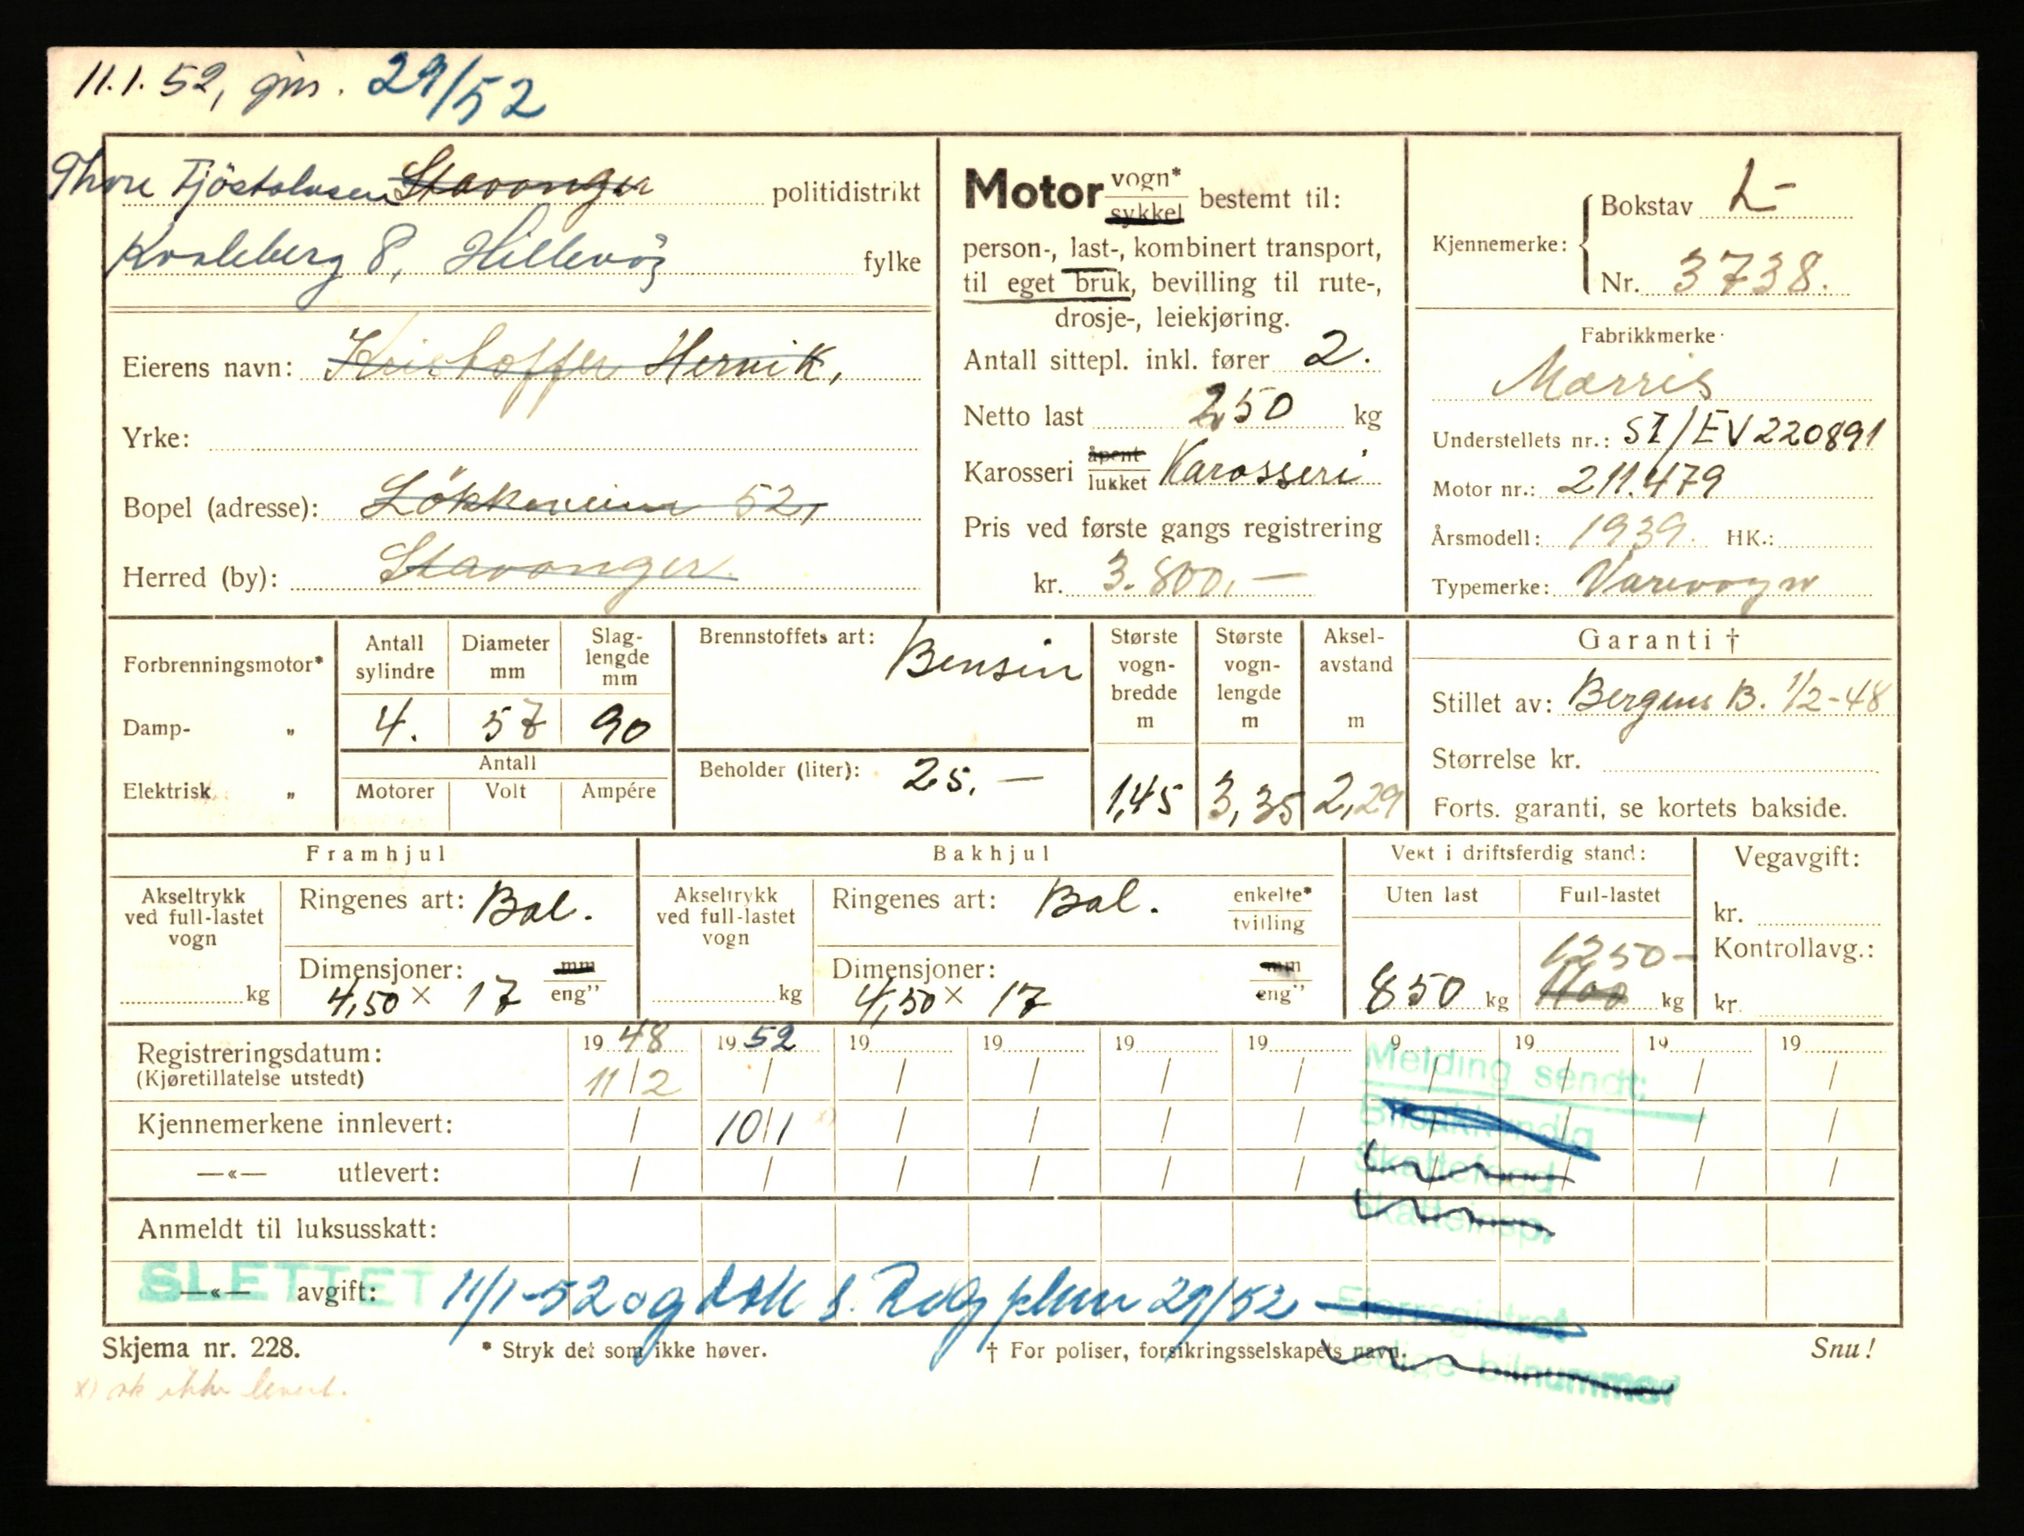 11.1.52, 29/52
Thore Tjöstolvsen Stavanger politidistrikt
Kvaleberg 8, Hillevåg fylke
Eierens navn: Kristoffer Hervik,
Yrke:
Bopel (adresse): Lökkeveien 52,
Herred (by): Stavanger
Motor vogn*
sykkel bestemt til:
person-, last-, kombinert transport,
til eget bruk, bevilling til rute-,
drosje-, leiekjøring.
Antall sittepl. inkl. fører 2.
Netto last 250 kg
Karosseri åpent
lukket Karosseri
Pris ved første gangs registrering
kr. 3.800,—
Kjennemerke: Bokstav L-
Nr. 3738.
Fabrikkmerke:
Morris
Understellets nr.: SI/EV220891
Motor nr.: 211.479
Årsmodell: 1939. HK.:
Typemerke: Varevogn
Forbrenningsmotor*
Damp- „
Elektrisk „
Antall sylindre Diameter mm Slag-lengde mm
4. 57 90
Antall
Motorer Volt Ampére
Brennstoffets art: Bensin
Beholder (liter): 25.—
Største vogn-bredde m
1,45
Største vogn-lengde m
3,35
Aksel-avstand m
2,29
Garanti †
Stillet av: Bergens B. 1/2-48
Størrelse kr.
Forts. garanti, se kortets bakside.
Framhjul
Akseltrykk
ved full-lastet
vogn
kg
Ringenes art: Bal.
Dimensjoner: mm
4,50 × 17 eng"
Bakhjul
Akseltrykk
ved full-lastet
vogn
kg
Ringenes art: Bal. enkelte*
tvilling
Dimensjoner: mm
4,50 × 17 eng"
Vekt i driftsferdig stand:
Uten last Full-lastet
1250-
850 kg 1100 kg
Vegavgift:
kr.
Kontrollavg.:
kr.
Registreringsdatum: 19 48 19 52 19 19 19 19 19 19 19 19
(Kjøretillatelse utstedt) 11/2 / / / / / / / / /
Kjennemerkene innlevert: / 10/1 x) / / / / / / / /
—«— utlevert: / / / / / / / / / /
Anmeldt til luksusskatt:
—«— avgift:
SLETTET 11/1-52 og 29/52
Melding sendt:
Bilsakkyndig
Skattefogd
Skatteinsp.
Eierregistret
Ledige bilnummer
Skjema nr. 228. * Stryk det som ikke høver. † For poliser, forsikringsselskapets navn. Snu!
x) ikke levert.